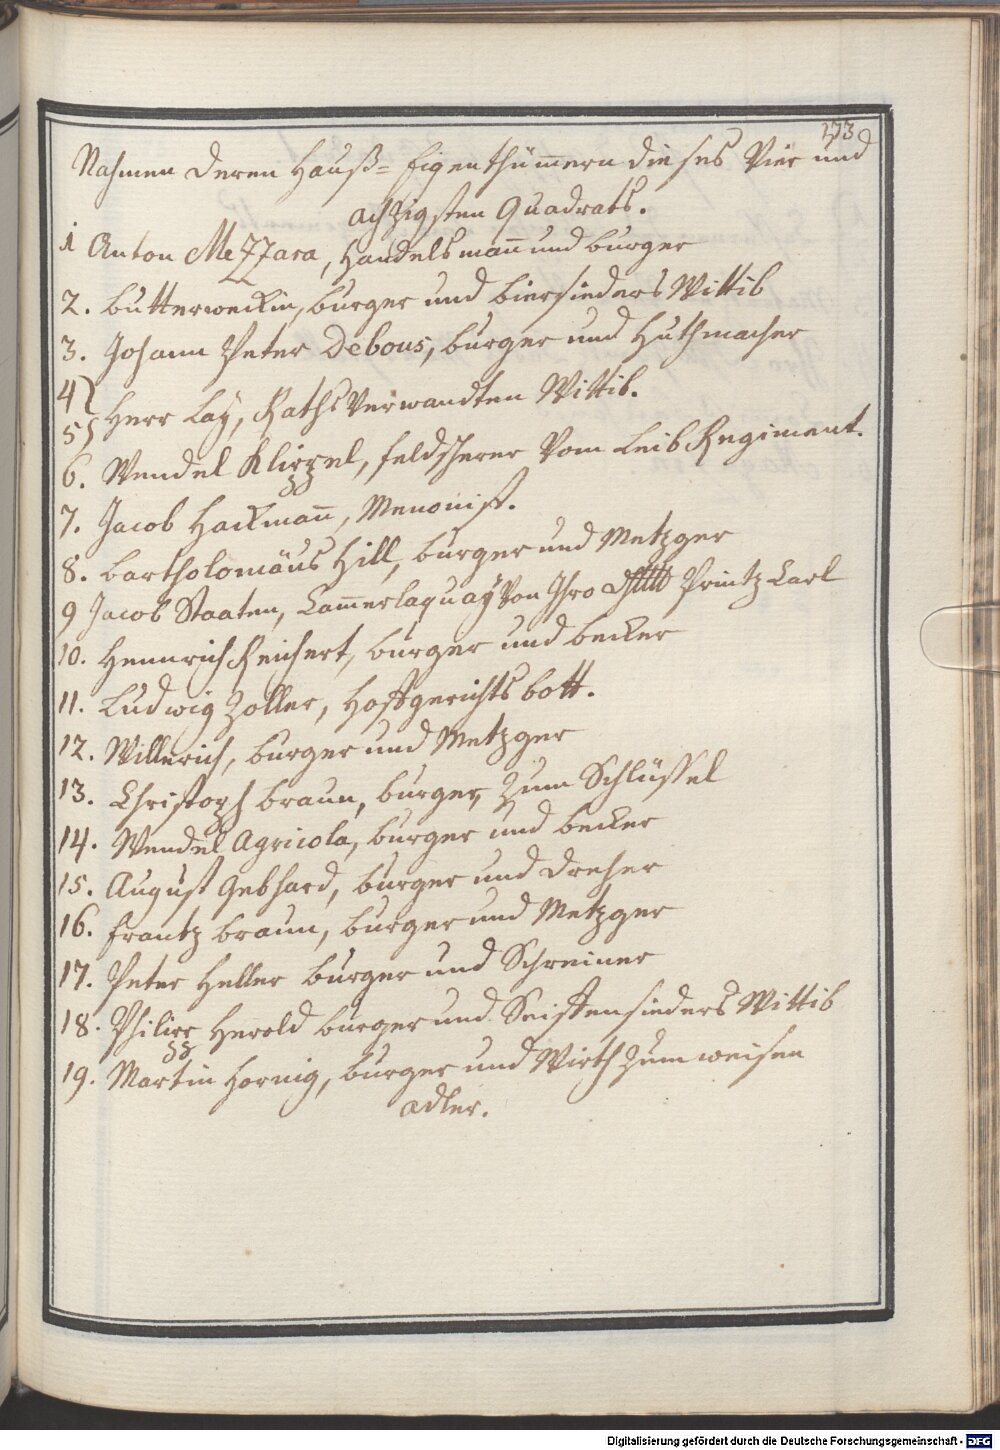 173
Nahmen deren Hauß= Eigenthümern dieses Vier und
achzigsten Quadrats.
1 Anton Mezzara, Handelsman̄ und burger
2. butterweckin, burger und biersieders Wittib
3. Johann Peter Debous, burger und Huthmacher
4}
5} Herr Lay, RathsVerwandten Wittib.
6. Wendel Klippel, feldscherer Vom Leib Regiment.
7. Jacob Hackman̄, Menonist.
8. bartholomäus Hill, burger und Metzger
9 Jacob Staaten, Cam̄erlaquay Von Ihro Printz Carl
10. Hennrich Reichert, burger und becker
11. Ludwig Zoller, Hoffgerichts bott.
12. Willerich, burger und Metzger
13. Christoph braun, burger, Zum Schlüssel
14. Wendel Agricola, burger und becker
15. August Gebhard, burger und dreher
16. frantz braun, burger und Metzger
17. Peter Heller burger und Schreiner
18. Philipp Herold burger und Seiffensieders Wittib
19. Martin Hornig, burger und Wirth Zum weisen
adler.
Digitalisierung gefördert durch die Deutsche Forschungsgemeinschaft - DFG